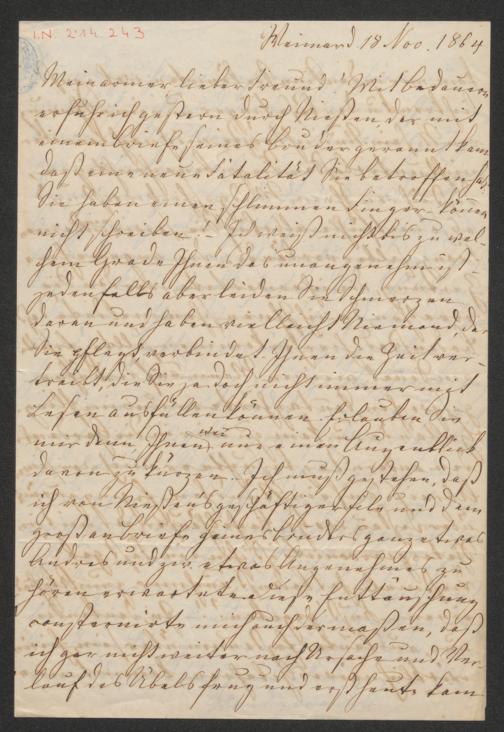 I.N. 214.243
Weimar d 18 Nov. 1864
Mein armer lieber Freund! Mit Bedauern
erfuhr ich gestern durch Nießen, der mit
einem Briefe seines Bruder gerannt kam
daß eine neue Fatalität Sie betroffen hat.
Sie haben einen schlimmen Finger, können
nicht schreiben! – Ich weiß nicht bis zu wel-
chem Grade Ihnen das unangenehm ist –
jedenfalls aber leiden Sie Schmerzen
daran und haben vielleicht Niemand, der
Sie pflegt verbindet. Ihnen die Zeit ver-
treibt, die Sie ja doch nicht immer mit
Lesen ausfüllen können. Erlauben Sie
mir denn, Ihnen wie nur einen Augenblick
davon zu kürzen. Ich muß gestehen, daß
ich von Nießen's geschäftiger Eile und dem
großen Briefe seines Bruders ganz etwas
Andres und zwar etwas Angenehmes zu
hören erwartete. diese Enttäuschung
consternirte mich auch dermaßen, daß
ich gar nicht weiter nach Ursache und Ver-
lauf des Übels frug und erst heute kam